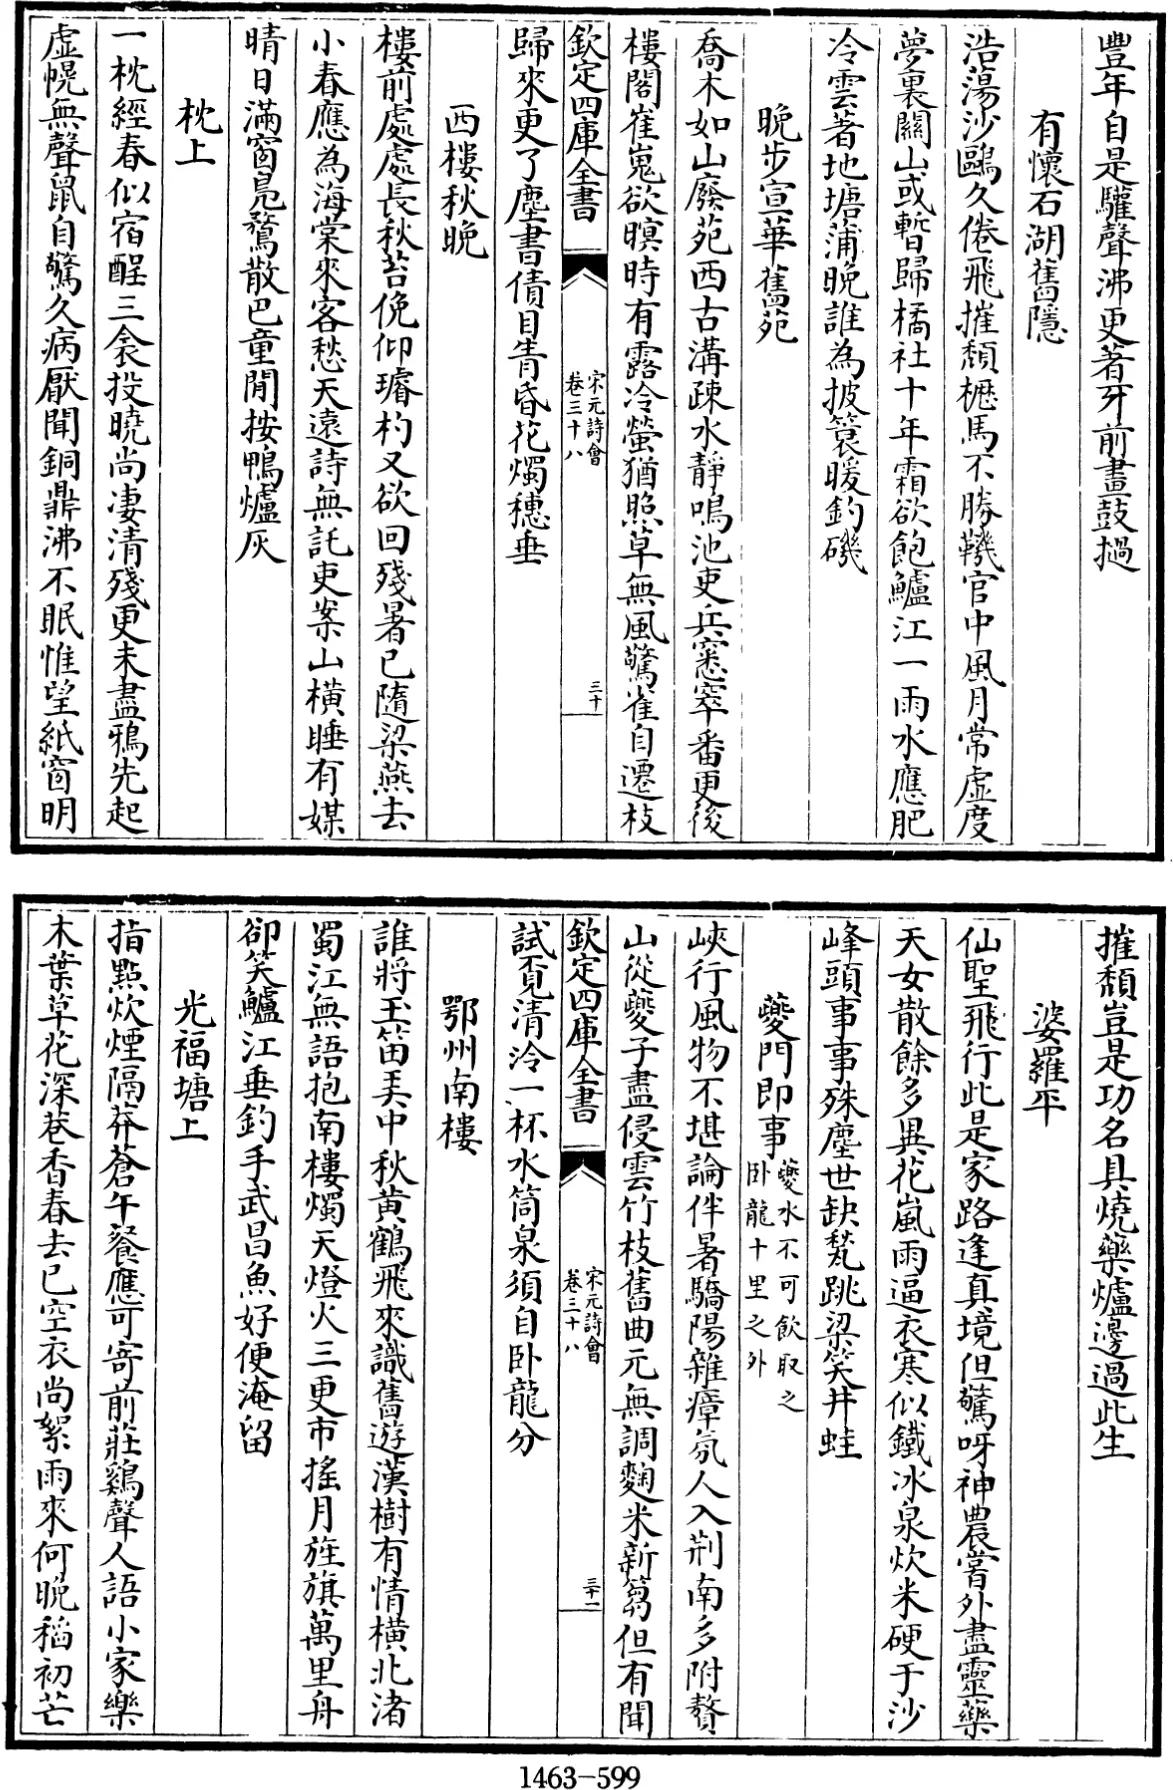 豐年自是驩聲沸更著牙前畫鼓撾
有懷石湖舊隱
浩蕩沙鷗久倦飛摧頽櫪馬不勝鞿官中風月常虚度
夢裏關山或暫歸橘社十年霜欲飽鱸江一雨水應肥
冷雲著地塘蒲晩誰為披簑暖釣磯
晩步宣華舊苑
喬木如山廢苑西古溝疎水靜鳴池吏兵窸窣番更後
樓閣崔嵬欲暝時有露冷螢猶照草無風驚雀自遷枝
欽定四庫全書
宋元詩會
卷三十八
三十
歸來更了塵書債目眚昏花燭穗垂
西樓秋晩
樓前處處長秋苔俛仰璿杓又欲回殘暑已隨梁燕去
小春應為海棠來客愁天遠詩無託吏案山横睡有媒
晴日滿窗鳬鶩散巴童閒按鴨爐灰
枕上
一枕經春似宿酲三衾投曉尚凄清殘更未盡鴉先起
虚幌無聲鼠自驚久病厭聞銅鼎沸不眠惟望紙窗明
摧頽豈是功名具燒藥爐邊過此生
婆羅平
仙聖飛行此是家路逢真境但驚呀神農嘗外盡靈藥
天女散餘多異花嵐雨逼衣寒似鐵冰泉炊米硬于沙
峰頭事事殊塵世缺甃跳梁笑井蛙
夔門即事
夔水不可飲取之
卧龍十里之外
峽行風物不堪論伴暑驕陽雜瘴氛人入荆南多附贅
山從夔子盡侵雲竹枝舊曲元無調麴米新篘但有聞
欽定四庫全書
宋元詩會
卷三十八
三十一
試覔清泠一杯水筒泉須自卧龍分
鄂州南樓
誰將玉笛弄中秋黄鶴飛來識舊遊漢樹有情横北渚
蜀江無語抱南樓燭天燈火三更市搖月旌旗萬里舟
卻笑鱸江垂釣手武昌魚好便淹留
光福塘上
指點炊煙隔莽蒼午餐應可寄前莊鷄聲人語小家樂
木葉草花深巷香春去已空衣尚絮雨來何晩稻初芒
1463-599